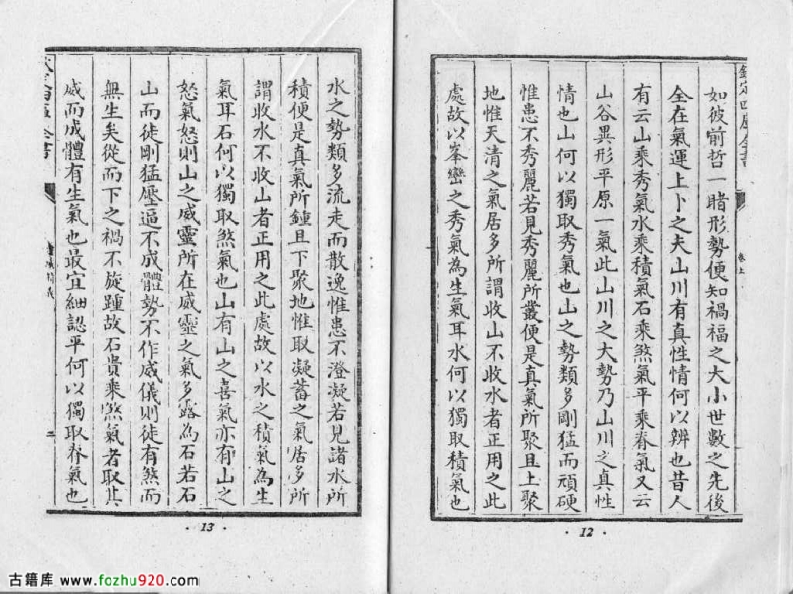 如彼前哲一睹形勢便知禍福之大小世數之先後
全在氣運上卜之夫山川有真性情何以辨也昔人
有云山乘秀氣水乘積氣石乘煞氣平乘脊氣又云
山谷異形平原一氣此山川之大勢乃山川之真性
情也山何以獨取秀氣也山之勢類多剛猛而頑硬
惟患不秀麗若見秀麗所叢便是真氣所聚且上聚
地惟天清之氣居多所謂收山不收水者正用之此
處故以峯巒之秀氣為生氣耳水何以獨取積氣也
卷上
· 12 ·
水之勢類多流走而散逸惟患不澄凝若見諸水所
積便是真氣所鍾且下聚地惟取凝蓄之氣居多所
謂收水不收山者正用之此處故以水之積氣為生
氣耳石何以獨取煞氣也山有山之喜氣亦有山之
怒氣怒則山之威靈所在威靈之氣多露為石若石
山而徒剛猛壓逼不成體勢不作威儀則徒有煞而
無生矣從而下之禍不旋踵故石貴乘煞氣者取其
威而成體有生氣也最宜細認平何以獨取脊氣也
二
· 13 ·
古籍库 www.fozhu920.com